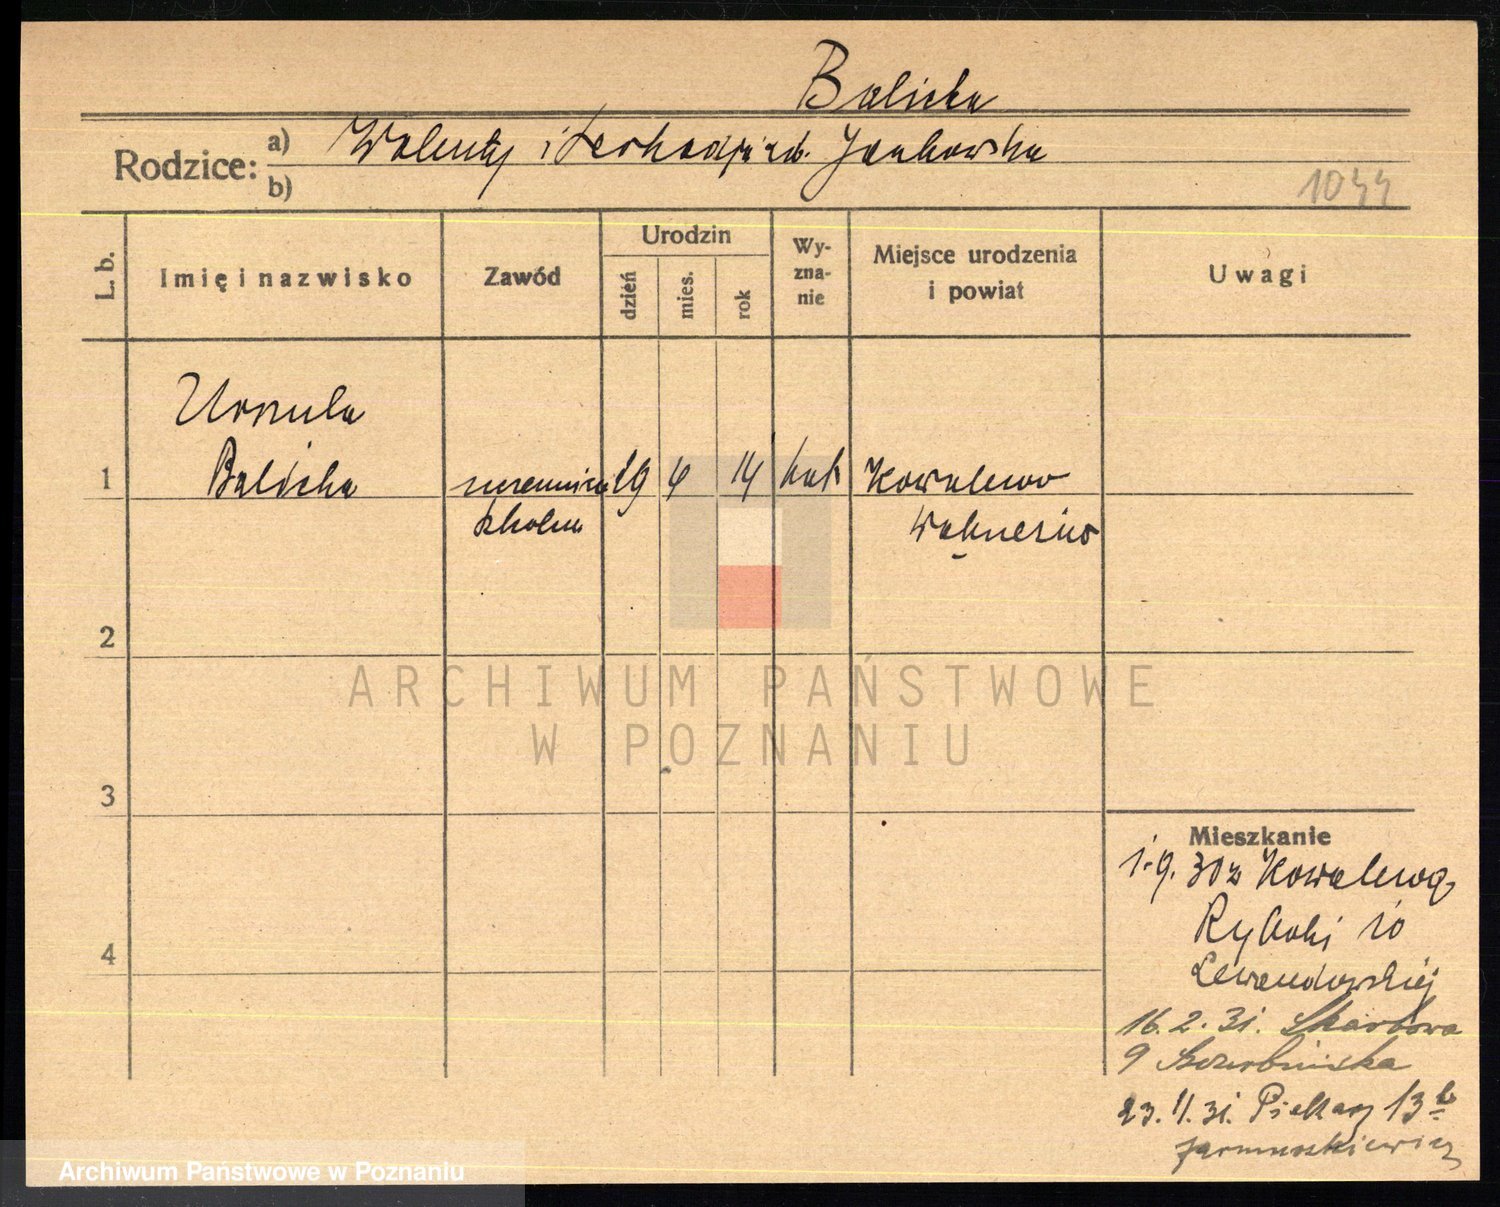 Balicka
Rodzice: a) Walenty i Leokadja zd. Jankowska
b)
1044
L. b.
Imię i nazwisko
Zawód
Urodzin
dzień
mies.
rok
Wy-
zna-
nie
Miejsce urodzenia
i powiat
Uwagi
Urszula
1 Balicka uczennica 19 4 14 kat Kowalewo
szkolna
2
ARCHIWUM PAŃSTWOWE
W POZNANIU
3
Mieszkanie
1.9.30 z Kowalewa
4 Rybaki 10
Lewandowskiej
16.2.31. Skarbowa
9
23.11.31. Piekary 13 b
Jarmuszkiewicz
Archiwum Państwowe w Poznaniu